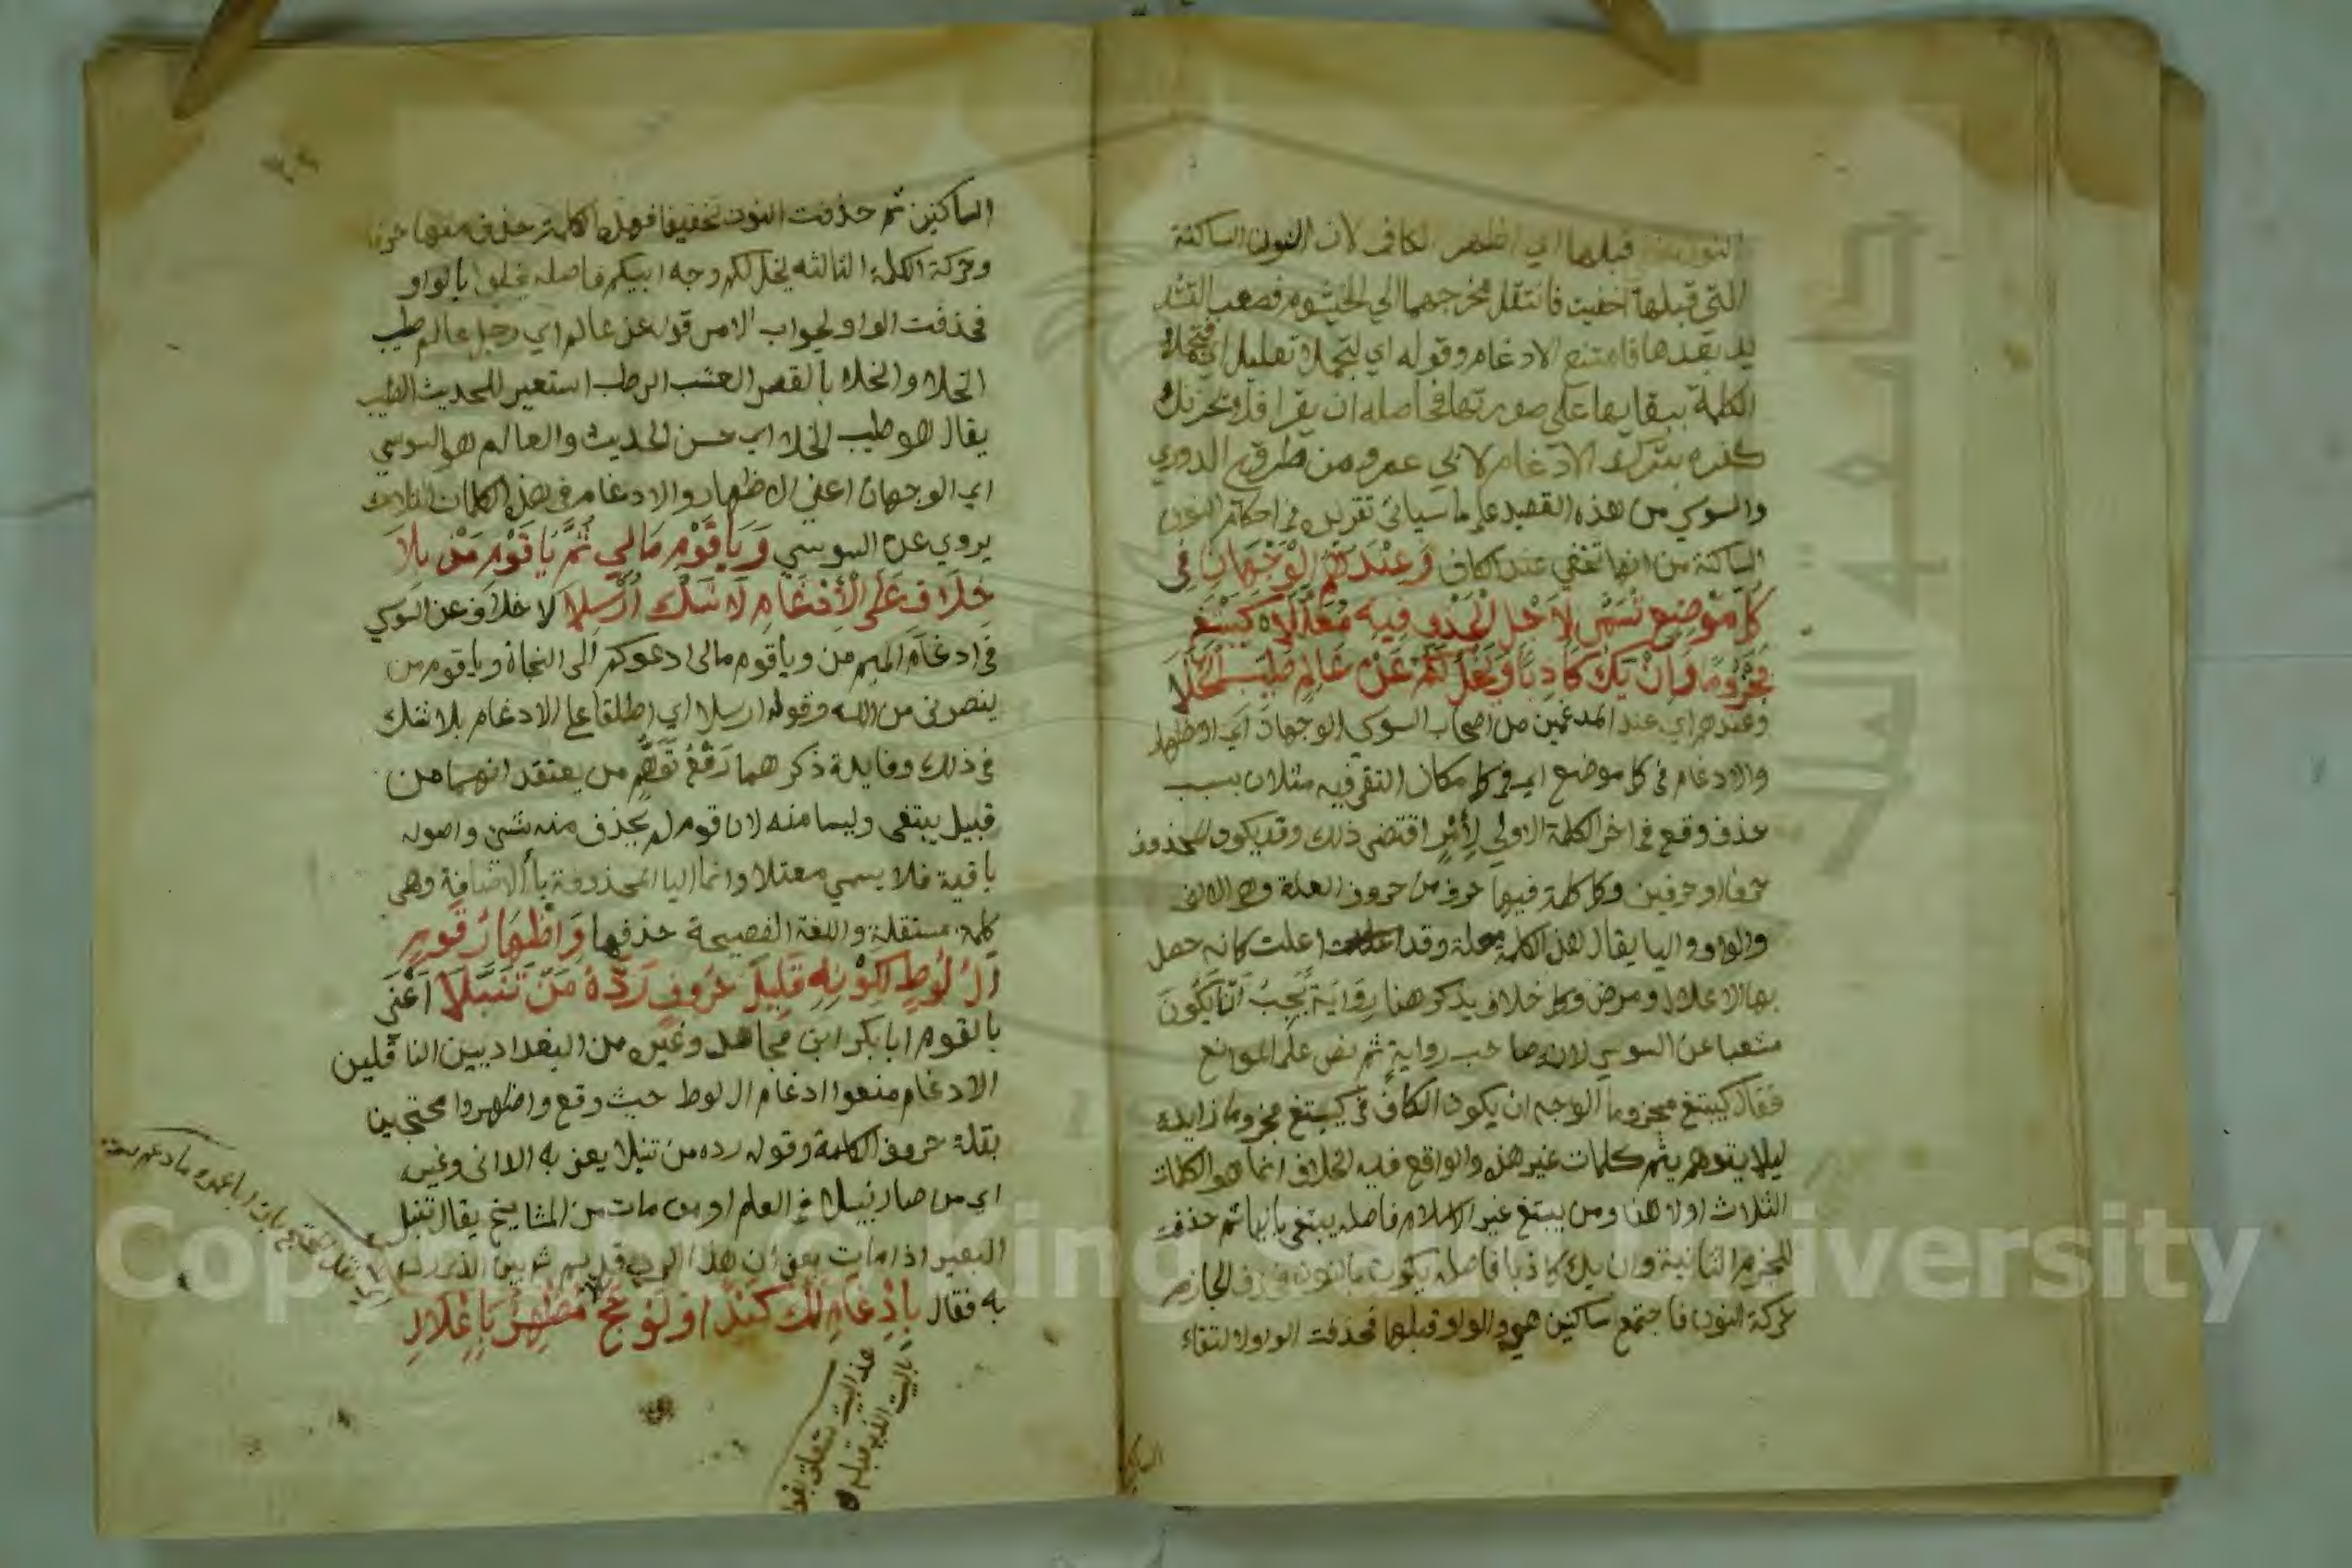 النون قبلها اي اظهر الكاف لان النون الساكنة
التي قبلها اخفيت فانتقل مخرجهما الي الخيشوم فصعب التشد
يد بعدها فامتنع الادغام وقوله اي لتجملا تعليل اي لتجملا
الكلمة ببقايها على صورتها في اصله ان يقرا فلا يحزنك
كفره بترك الادغام لابي عمرو من طرق الدوري
والسوسي من هذه القصيد على ما سيأتي تقريره في احكام النون
الساكنة من انها تخفي عند الكاف وَعِنْدَهُمُ الْوَجْهَانِ فِي
كُلِّ مَوْضِعٍ تَسَمَّى لِأَجْلِ الْحَذْفِ فِيهِ مُعَلَّلَا كَيَبْتَغِ
مَجْزُومًا وَاِنْ يَكُ كَاذِبًا وَيَخْلُ لَكُمْ عَنْ عَالِمٍ طَيِّبِ الْخَلَا
وعندهم اي عند المدغمين من اصحاب السوسي الوجهان اي الاظهار
والادغام في كل موضع اي في كل مكان التقى فيه مثلان بسبب
حذف وقع في اخر الكلمة الاولي لِأَمْرٍ اقتضى ذلك وقد يكون المحذوف
حرفا او حرفين وكل كلمة فيها حرف من حروف العلة وهو الالف
والواو واليا يقال لهذه الكلمة معلة وقد اعلت كانه حصل
بها الاعلال ومرض وكل خلاف يذكر هنا رواية يجب ان يكون
متشعبا عن السوسي لانه صاحب رواية ثم نص على المواضع
فقال كيبتغ مجزوما الوجه ان يكون الكاف في كيبتغ مجزوما زايده
ليلا يتوهم يثم كلمات غير هذه والواقع فيه الخلاف انما هو الكلمات
الثلاث اولاهن ومن يبتغ غير الاسلام فاصله يبتغي باليا ثم حذفت
للجزم الثانية وان يك كاذبا فاصله يكون بالنون فحذف الجازم
حركة النون فاجتمع ساكنين هي والواو قبلها فحذفت الواو لالتقاء
الساكنين
الساكنين ثم حذفت النون تخفيفا فهذه الكلمة حذف منها حرفا
وحركة الكلمة الثالثه يخل لكم وجه ابيكم فاصله يخلو بالواو
فحذفت الواو لجواب الامر قوله عن عالم اي رجل عالم طيب
الخلا والخلا بالقصر العشب الرطب استعير للحديث الطيب
يقال هو طيب الخلا اي حسن الحديث والعالم هو السوسي
اي الوجهان اعني الاظهار والادغام في هذه الكلمات الثلاث
يروي عن السوسي وَيَا قَوْمِ مَالِي ثُمَّ يَا قَوْمِ مَنْ بِلَا
خِلَافٍ عَلَى الْأِدْغَامِ لَا شَكَّ أُرْسِلَا لا خلاف عن السوسي
في ادغام الميم من ويا قوم مالى ادعوكم الى النجاة ويا قوم من
ينصرني من الله وقوله ارسلا اي اطلقا على الادغام بلا شك
في ذلك وفايدة ذكر هما رَفْعُ تَوَهُّمِ من يعتقد انهما من
قبيل يبتغى وليسا منه لان قوم لم يحذف منه شى واصوله
باقية فلا يسمي معتلا وانما اليا المحذوفة يا الاضافة وهي
كلمة مستقلة واللغة الفصيحة حذفها وَاظْهَارُ قَوْمٍ
آلَ لُوطٍ لِكَوْنِهِ قَلِيلَ حُرُوفٍ رَدَّهُ مَنْ تَنَبَّلَا أعني
بالقوم ابا بكر ابن مجاهد وغيره من البغداديين الناقلين
الادغام منعوا ادغام ال لوط حيث وقع واظهروا محتجين
بقلة حروف الكلمة وقوله رده من تنبلا يعني به الداني وغيره
اي من صار نبيلا في العلم او من مات من المشايخ يقال تنبل
البعير اذا مات يعني ان هذا الرد قديم ثم بين الذي رد
به فقال بِاِدْغَامِ لَكَ كَيْدًا وَلَوْ حَجَّ مُظْهِرٌ بِاِعْلَالِ
هذا البيت متعلق بهذا
بالبيت الذي قبله
Copyright © King Saud University